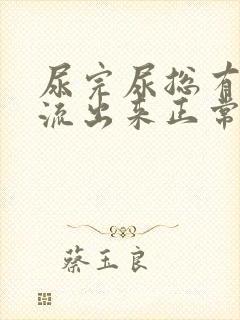 尿完尿总有
流出来正常
蔡玉良